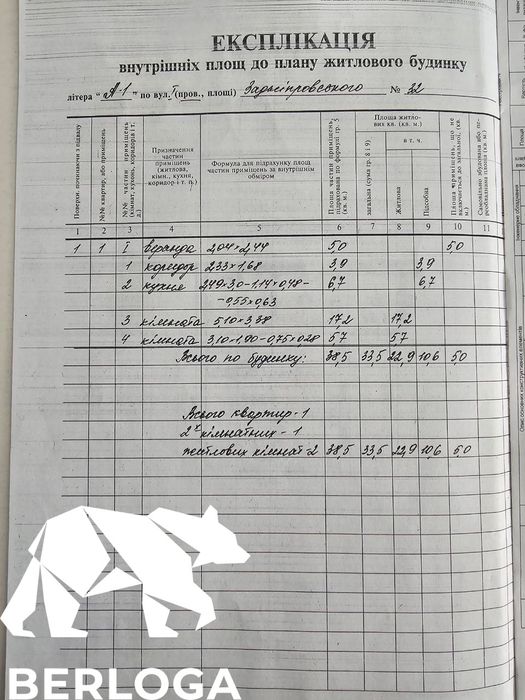 ЕКСПЛІКАЦІЯ
внутрішніх площ до плану житлового будинку
літера "А-1" по вул. (пров., площі) Задніпровського № 32
Поверхи, починаючи з підвалу
№№ квартир, або приміщень
№№ частин приміщень (кімнат, кухонь, коридорів і т. д.)
Призначення частин приміщень (житлова, кімн., кухня, коридор і т. п.)
Формула для підрахунку площ частин приміщень за внутрішнім обміром
Площа частин приміщень, підрахована по формулі гр. 5 (кв. м.)
Площа житлових кв. (кв. м.)
загальна (сума гр. 8 і 9)
в т. ч.
Житлова
Підсобна
Площа приміщень, що не включається до загальної, (кв. м.)
Самовільно збудована або переобладнана площа (кв. м.)
1 2 3 4 5 6 7 8 9 10 11
1 1 I веранда 2,04×2,44 5,0 5,0
1 коридор 2,33×1,68 3,9 3,9
2 кухня 2,49×3,0-1,14×0,48- 6,7 6,7
-0,55×0,63
3 кімната 5,10×3,38 17,2 17,2
4 кімната 3,10×1,90-0,75×0,28 5,7 5,7
Всього по будинку: 38,5 33,5 22,9 10,6 5,0
Всього квартир-1
2х кімнатних - 1
житлових кімнат-2 38,5 33,5 22,9 10,6 5,0
Опис основних конструктивних елементів
BERLOGA